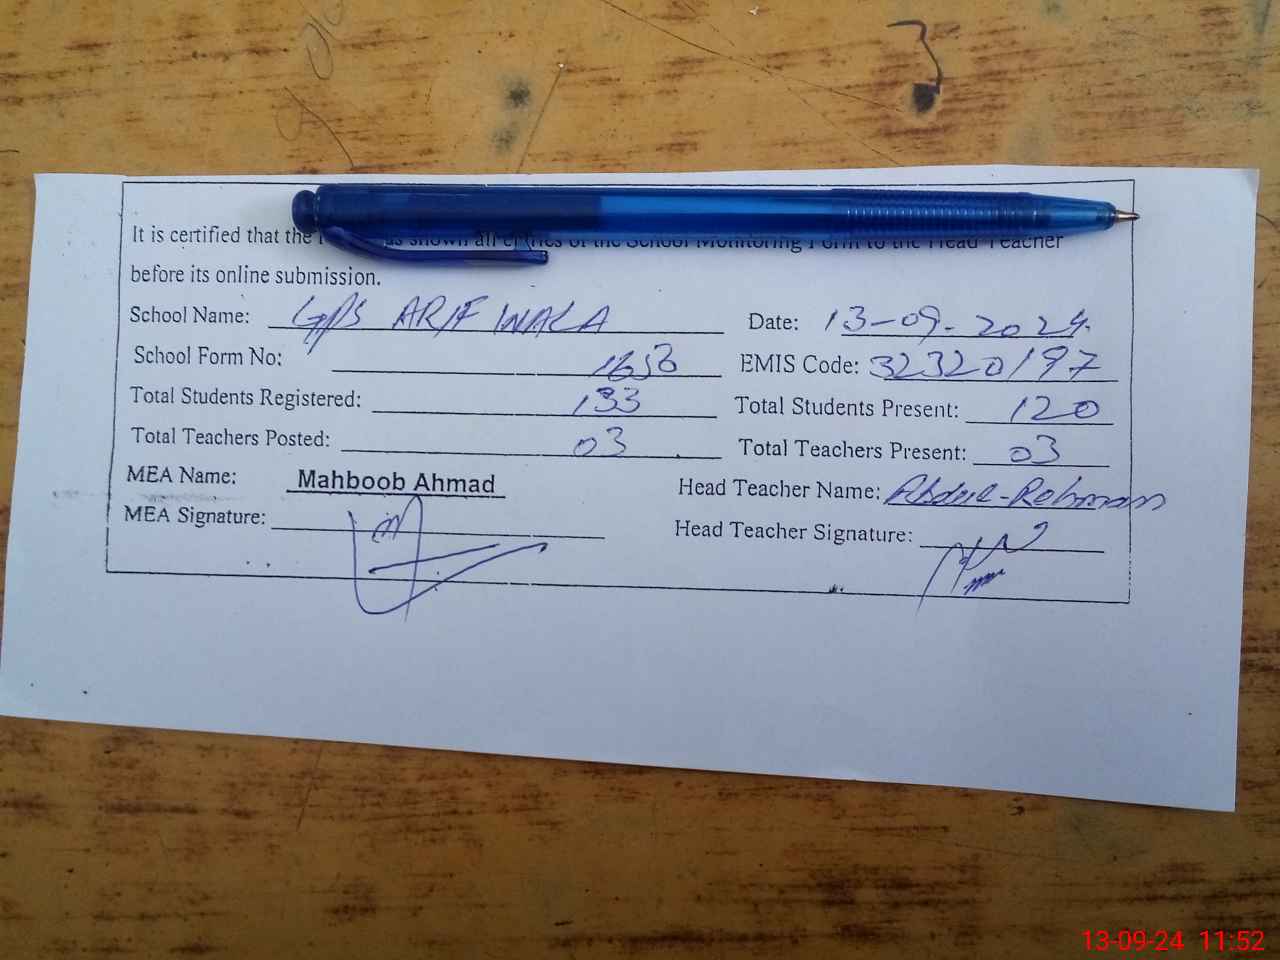 It is certified that the as shown all entries of the School Monitoring Form to the Head Teacher
before its online submission.
School Name: GPS ARIF WALA Date: 13-09-2024
School Form No: 1653 EMIS Code: 32320197
Total Students Registered: 133 Total Students Present: 120
Total Teachers Posted: 03 Total Teachers Present: 03
MEA Name: Mahboob Ahmad Head Teacher Name: Abdul-Rehman
MEA Signature: Head Teacher Signature:
13-09-24 11:52